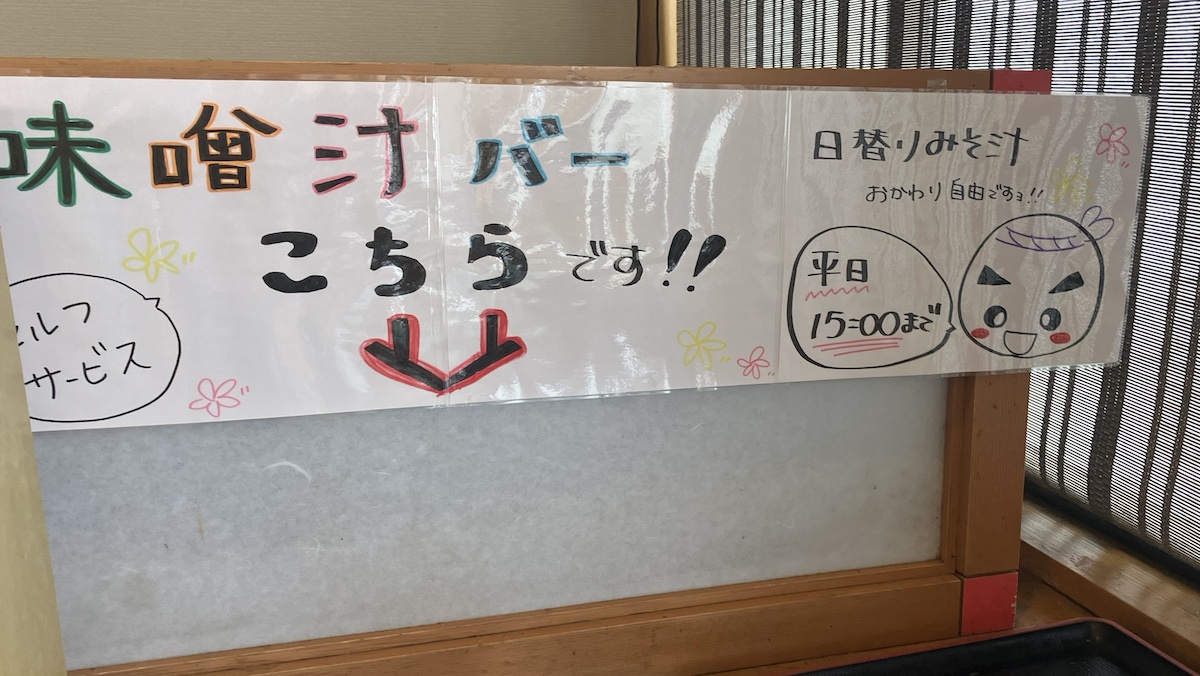 味噌汁バー
こちらです!!
セルフ
サービス
日替りみそ汁
おかわり自由ですョ!!
平日
15:00まで